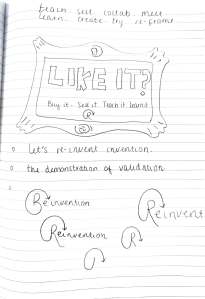 teach. sell. collab. meet
learn. create. try. re-frame
LIKE IT?
Buy it. Sell it. Teach it. Learn it.
R
let's re-invent invention.
the demonstration of validation
Reinvention
Reinvent
Reinvention
R